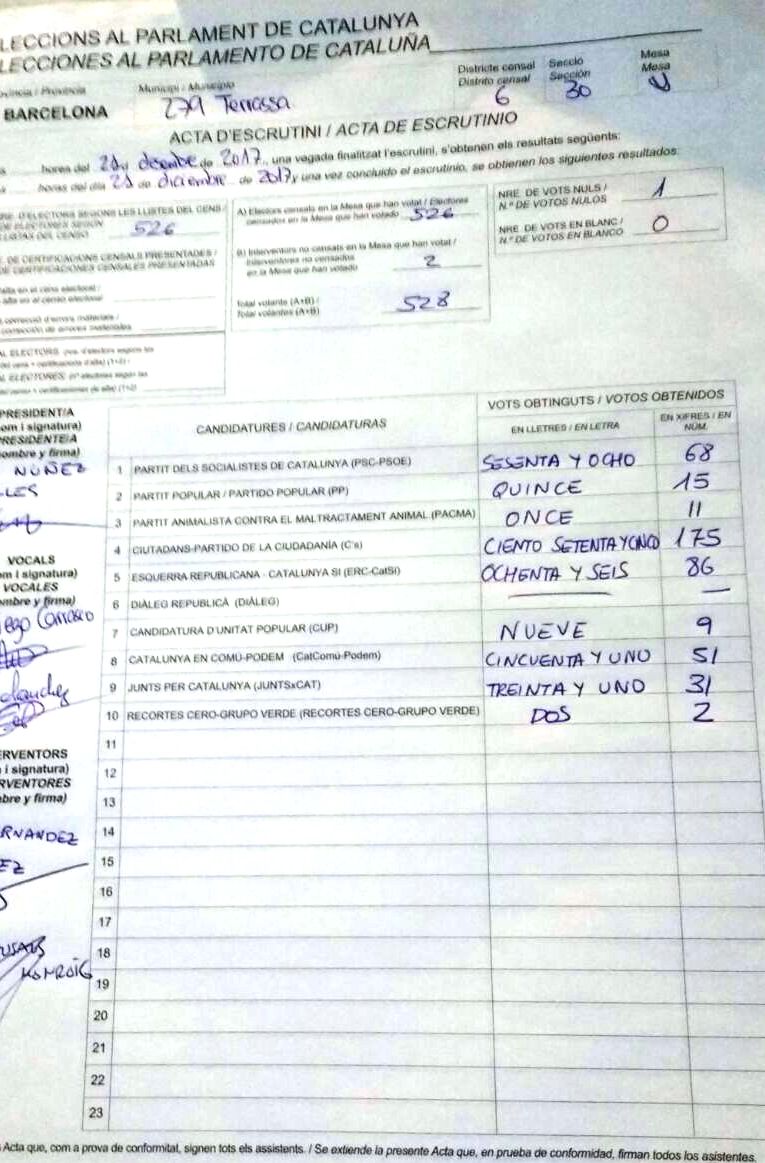 LECCIONS AL PARLAMENT DE CATALUNYA
LECCIONES AL PARLAMENTO DE CATALUÑA
ovíncia / Provincia
Municipi / Municipio
Districte censal
Distrito censal
Secció
Sección
Mesa
Mesa
BARCELONA
279 Terrassa
6
30
U
ACTA D'ESCRUTINI / ACTA DE ESCRUTINIO
hores del 21 de desembre de 2017, una vegada finalitzat l'escrutini, s'obtenen els resultats següents:
horas del día 21 de diciembre de 2017, y una vez concluido el escrutinio, se obtienen los siguientes resultados:
RE. D'ELECTORS SEGONS LES LLISTES DEL CENS /
DE ELECTORES SEGÚN
LISTAS DEL CENSO
526
. DE CERTIFICACIONS CENSALS PRESENTADES /
DE CERTIFICACIONES CENSALES PRESENTADAS
alta en el cens electoral /
alta en el censo electoral
correcció d'errors materials /
corrección de errores materiales
A) Electors censats en la Mesa que han votat / Electores
censados en la Mesa que han votado
526
B) Interventors no censats en la Mesa que han votat /
Interventores no censados
en la Mesa que han votado
2
Total votants (A+B) /
Total votantes (A+B)
528
NRE. DE VOTS NULS /
N.º DE VOTOS NULOS
1
NRE. DE VOTS EN BLANC /
N.º DE VOTOS EN BLANCO
0
PRESIDENT/A
om i signatura)
PRESIDENTE/A
ombre y firma)
NÚÑEZ
LES
VOCALS
om i signatura)
VOCALES
ombre y firma)
ego Carrasco
Sanchez
ERVENTORS
i signatura)
RVENTORES
bre y firma)
RNANDEZ
EZ
CANDIDATURES / CANDIDATURAS
VOTS OBTINGUTS / VOTOS OBTENIDOS
EN LLETRES / EN LETRA
EN XIFRES / EN NÚM.
1 PARTIT DELS SOCIALISTES DE CATALUNYA (PSC-PSOE) SESENTA Y OCHO 68
2 PARTIT POPULAR / PARTIDO POPULAR (PP) QUINCE 15
3 PARTIT ANIMALISTA CONTRA EL MALTRACTAMENT ANIMAL (PACMA) ONCE 11
4 CIUTADANS-PARTIDO DE LA CIUDADANÍA (C's) CIENTO SETENTA Y CINCO 175
5 ESQUERRA REPUBLICANA - CATALUNYA SI (ERC-CatSí) OCHENTA Y SEIS 86
6 DIÀLEG REPUBLICÀ (DIÀLEG) —
7 CANDIDATURA D'UNITAT POPULAR (CUP) NUEVE 9
8 CATALUNYA EN COMÚ-PODEM (CatComú-Podem) CINCUENTA Y UNO 51
9 JUNTS PER CATALUNYA (JUNTSxCAT) TREINTA Y UNO 31
10 RECORTES CERO-GRUPO VERDE (RECORTES CERO-GRUPO VERDE) DOS 2
11
12
13
14
15
16
17
18
19
20
21
22
23
Acta que, com a prova de conformitat, signen tots els assistents. / Se extiende la presente Acta que, en prueba de conformidad, firman todos los asistentes.